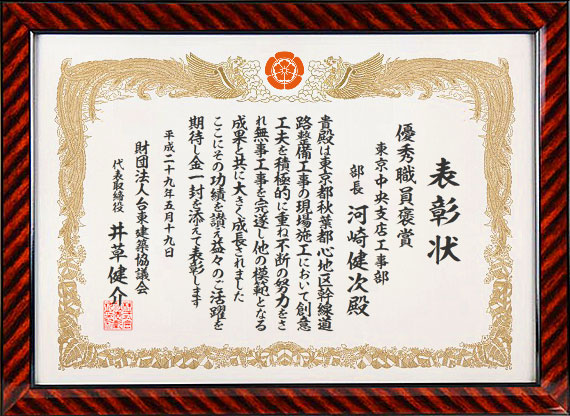 表彰状
優秀職員褒賞
東京中央支店工事部
部長 河崎健次殿
貴殿は東京都秋葉都心地区幹線道
路整備工事の現場施工において創意
工夫を積極的に重ね不断の努力をさ
れ無事工事を完遂し他の模範となる
成果と共に大きく成長されました
ここにその功績を讃え益々のご活躍を
期待し金一封を添えて表彰します
平成二十九年五月十九日
財団法人台東建築協議会
代表取締役 井草健介